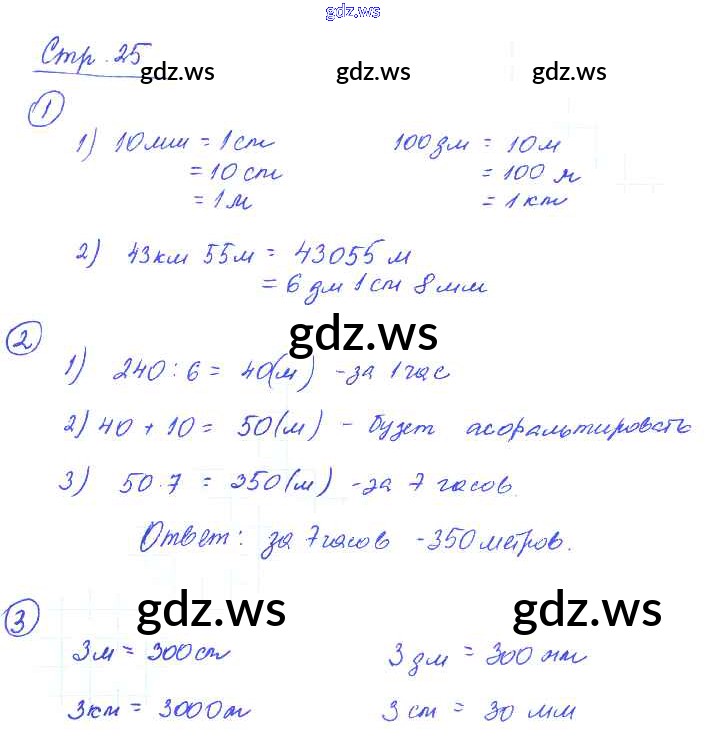 gdz.ws
Стр. 25
gdz.ws gdz.ws gdz.ws
1
1) 10мм = 1см 100дм = 10м
= 10 см = 100 м
= 1м = 1 км
2) 43км 55м = 43055 м
= 6 дм 1 см 8 мм
2
gdz.ws
1) 240 : 6 = 40(м) - за 1 час
2) 40 + 10 = 50(м) - будет асфальтировать
3) 50 · 7 = 350(м) - за 7 часов.
Ответ: за 7 часов - 350 метров.
3
gdz.ws gdz.ws
3м = 300см 3 дм = 300 мм
3км = 3000м 3 см = 30 мм